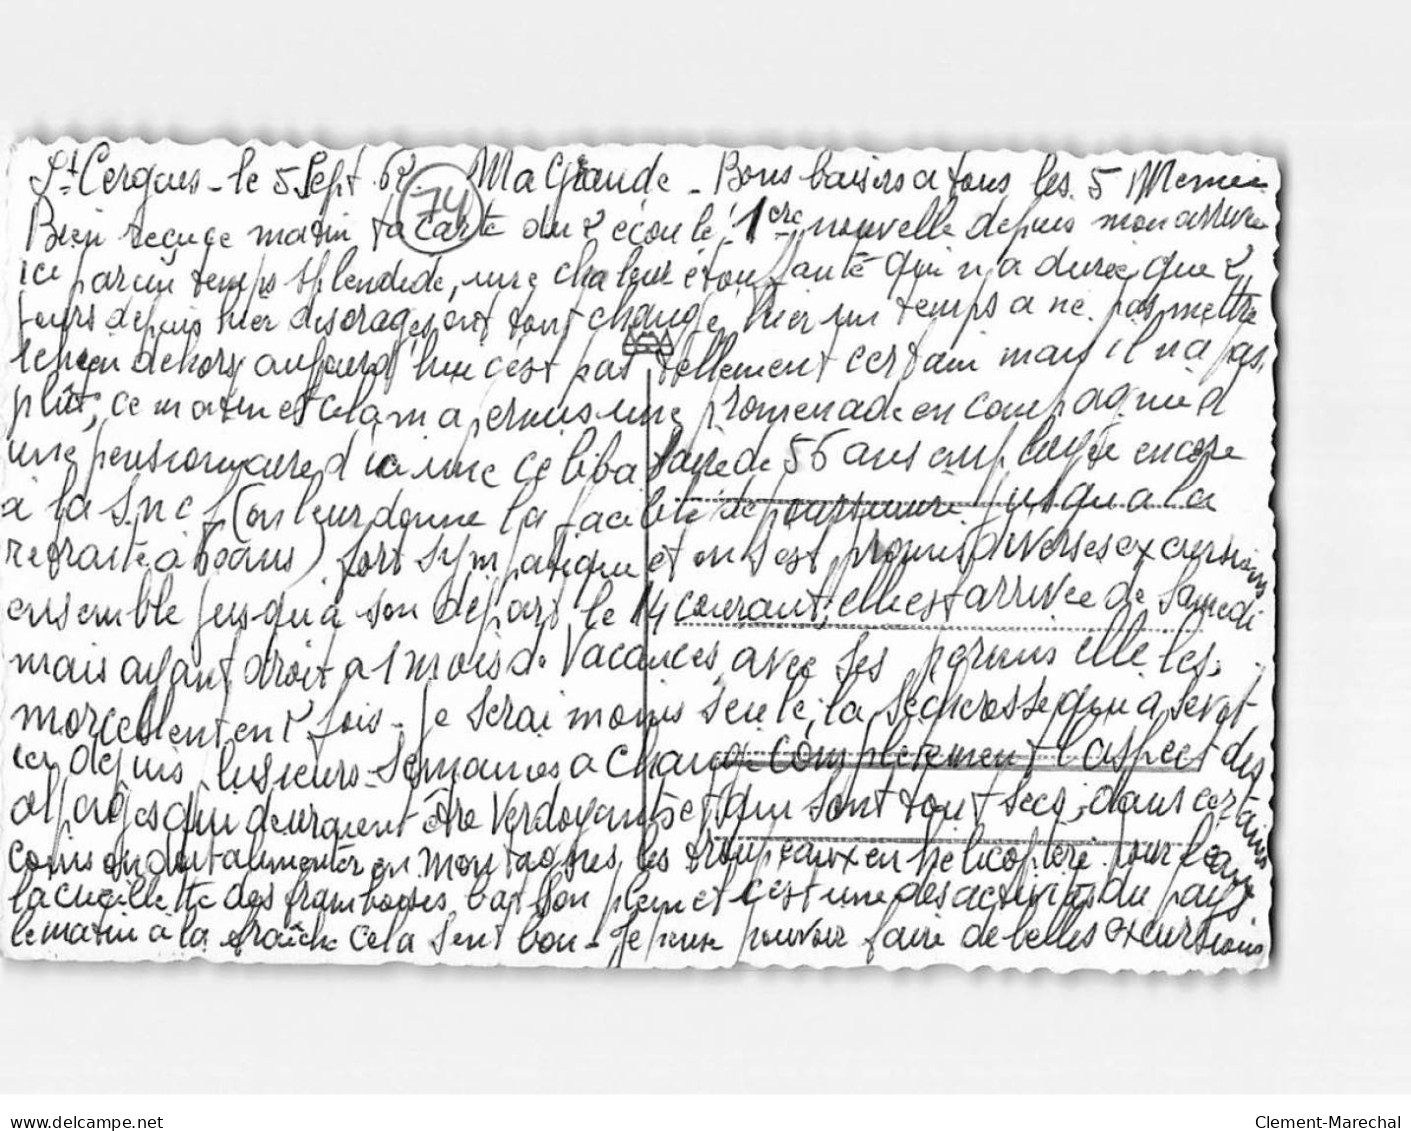 St Cergues - le 5 Sept 62. Ma Grande - Bons baisers a tous les 5 Memée
74
Bien reçu ce matin ta carte du 2 écoulé 1ere nouvelle depuis mon arrivée
ici par un temps splendide, une chaleur étouffante qui n'a durée que 2
jours depuis hier des orages ont tout changé, hier un temps a ne pas mettre
le chien dehors aujourd'hui c'est pas tellement certain mais il n'a pas
plût, ce matin et cela m'a permis une promenade en compagnie d
une pensionnaire d'ici une célibataire de 56 ans employée encore
à la Sncf (on leur donne la facilité de poursuivre jusqu'a la
retraite à 60 ans) fort sympatique et on s'est promis diverses excursions
ensemble jusqu'à son départ le 14 courant, elle est arrivée de Samedi
mais ayant droit a 1 mois de Vacances, avec ses permis elle les
morcellent en 2 fois - Je serai moins seule, la sécheresse qui a sevit
ici depuis plusieurs Semaines a changé complètement l'aspect des
alpages qui devraient être Verdoyants et qui sont tout secs, dans certains
coins on doit alimenter en montagnes les troupeaux en hélicoptère pour l'eau
la cueillette des framboises bat son plein et c'est une des activités du pays
le matin à la fraîche cela sent bon - Je pense pouvoir faire de belles excursions
delcampe.net
Clement-Marechal